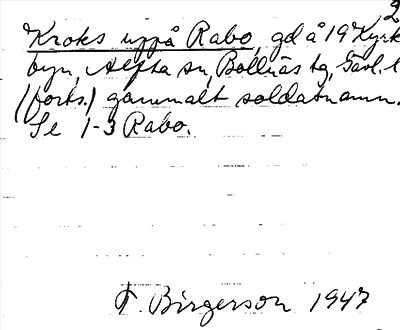 2
Kroks uppå Rabo, gd å 19 Kyrk
byn, Alfta sn, Bollnäs tg, Gävl. l
(forts.) gammalt soldatnamn.
Se 1-3 Rabo.
F. Birgerson 1947